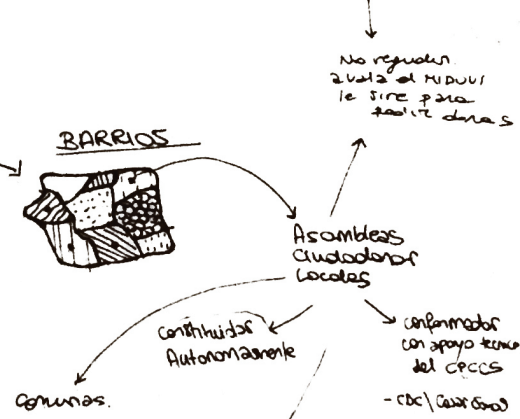 No regulan
avala el MIDUVI
le sirve para
pedir
BARRIOS
Asambleas
Ciudadanas
Locales
Constituidas
Autonomamente
conformadas
con apoyo técnico
del CPCCS
Comunas.
- CDC\